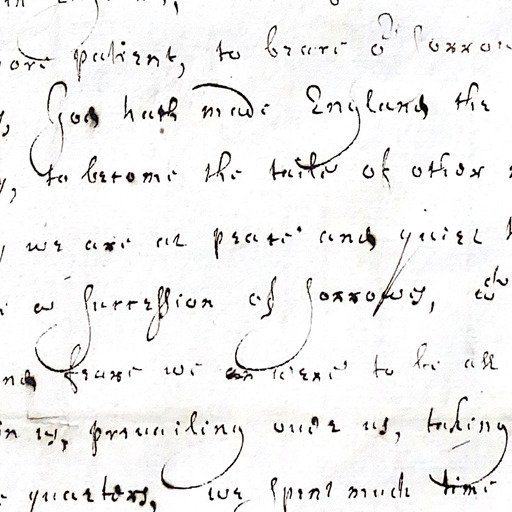 more patient, to beare o^r sorrow
God hath made England the
to become the taile of other
we are at peace and quiet
a succession of sorrowes,
feare we were to be all
in us, prevailing over us, taking
quarters, we spent much time